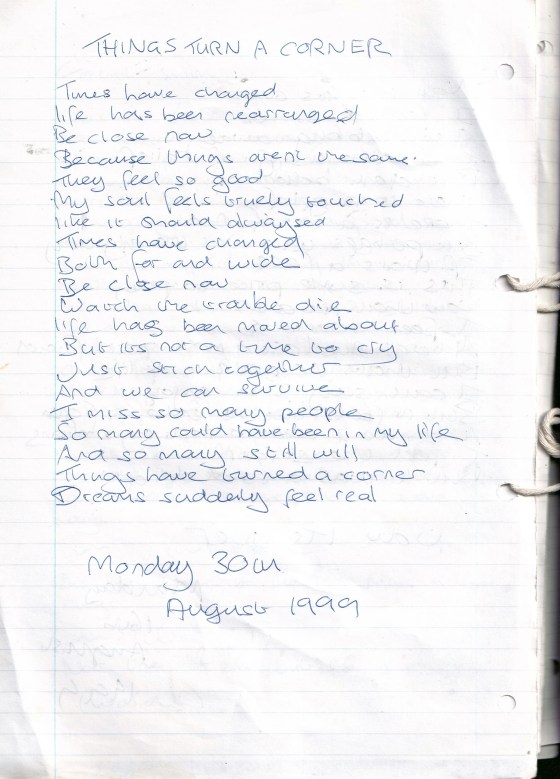 THINGS TURN A CORNER
Times have changed
life has been rearranged
Be close now
Because things arent the same.
They feel so good
My soul feels truely touched
like it should alwaysed
Times have changed
Both far and wide
Be close now
Watch the trouble die
life has been moved about
But its not a time to cry
Just stick together
And we can survive
I miss so many people
So many could have been in my life
And so many still will
Things have turned a corner
Dreams suddenly feel real
Monday 30th
August 1999